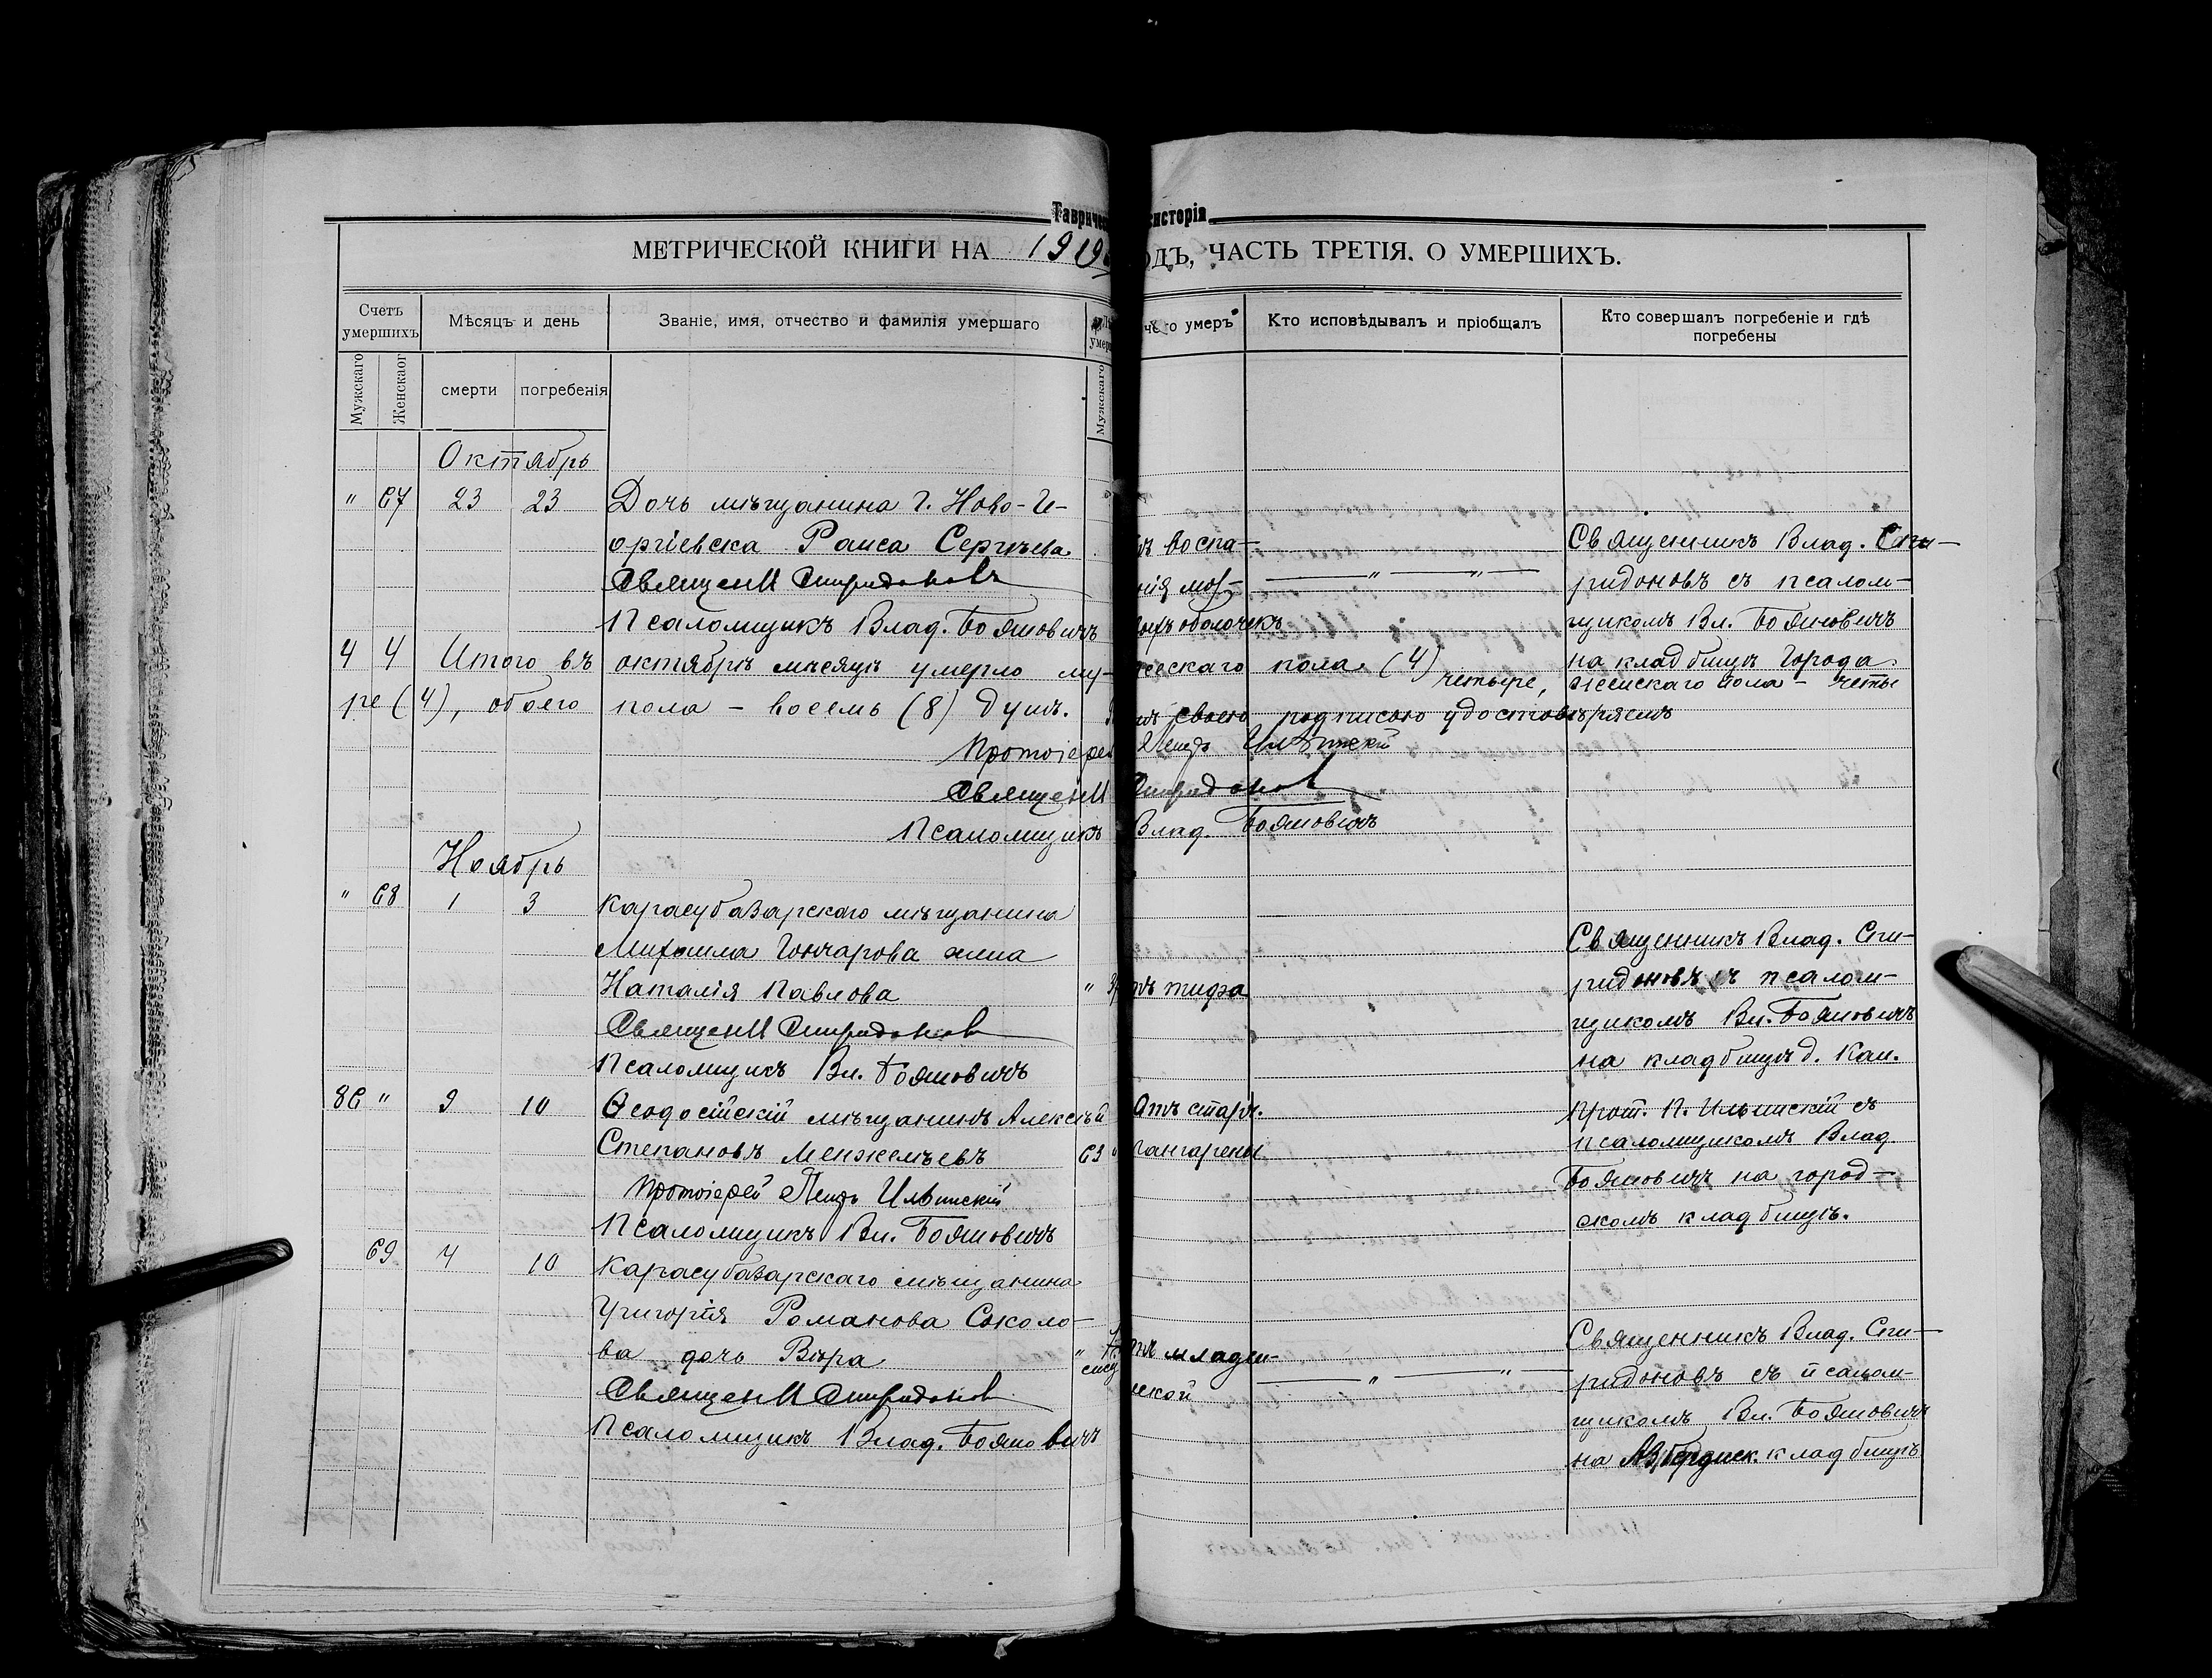 Тавричес систорія
МЕТРИЧЕСКОЙ КНИГИ НА 1919 ОДЪ, ЧАСТЬ ТРЕТІЯ. О УМЕРШИХЪ.
Счетъ умершихъ
Мѣсяцъ и день
Званіе, имя, отчество и фамилія умершаго
чего умеръ
Кто исповѣдывалъ и пріобщалъ
Кто совершалъ погребеніе и гдѣ погребены
Мужскаго
Женскаог
смерти
погребенія
Мужскаго
Октябрь
" 67 23 23 Дочь мѣщанина г. Ново-Ге-
оргіевска Раиса Сергѣева
Священ Спиридоновъ
Псаломщикъ Влад. Бояновичъ
ъ воспа-
нія моз-
выхъ оболочекъ
— " — " —
Священникъ Влад. Спи-
ридоновъ съ псалом-
щикомъ Вл. Бояновичъ
на кладбищѣ города.
4 4 Итого въ октябрѣ мѣсяцѣ умерло му- ескаго пола (4) четыре, женскаго пола – четы
ре (4), обоего пола – восемь (8) душъ. ъ своею подписью удостовѣряемъ
Протоіерей Петръ Ильинскій
Священ Спиридонов
Псаломщикъ Влад. Бояновичъ
Ноябрь
" 68 1 3 Карасубазарскаго мѣщанина
Михаила Гончарова жена
Наталія Павлова
Священ Спиридонов
Псаломщикъ Вл. Бояновичъ
" тъ тифа
Священникъ Влад. Спи-
ридоновъ съ псалом-
щикомъ Вл. Бояновичъ
на кладбищѣ д. Кан.
86 " 9 10 Ѳеодосійскій мѣщанинъ Алексѣй
Степановъ Менжелѣевъ 63
Протоіерей Петръ Ильинскій
Псаломщикъ Вл. Бояновичъ
Отъ стар.
гангрены
Прот. П. Ильинскій съ
псаломщикомъ Влад.
Бояновичъ на город-
скомъ кладбищѣ.
69 4 10 Карасубазарскаго мѣщанина
Григорія Романова Соколо-
ва дочь Вѣра
Священ Спиридонов
Псаломщикъ Влад. Бояновичъ
" тъ младен-
ской
— " — " —
Священникъ Влад. Спи-
ридоновъ съ псалом-
щикомъ Вл. Бояновичъ
на кладбищѣ